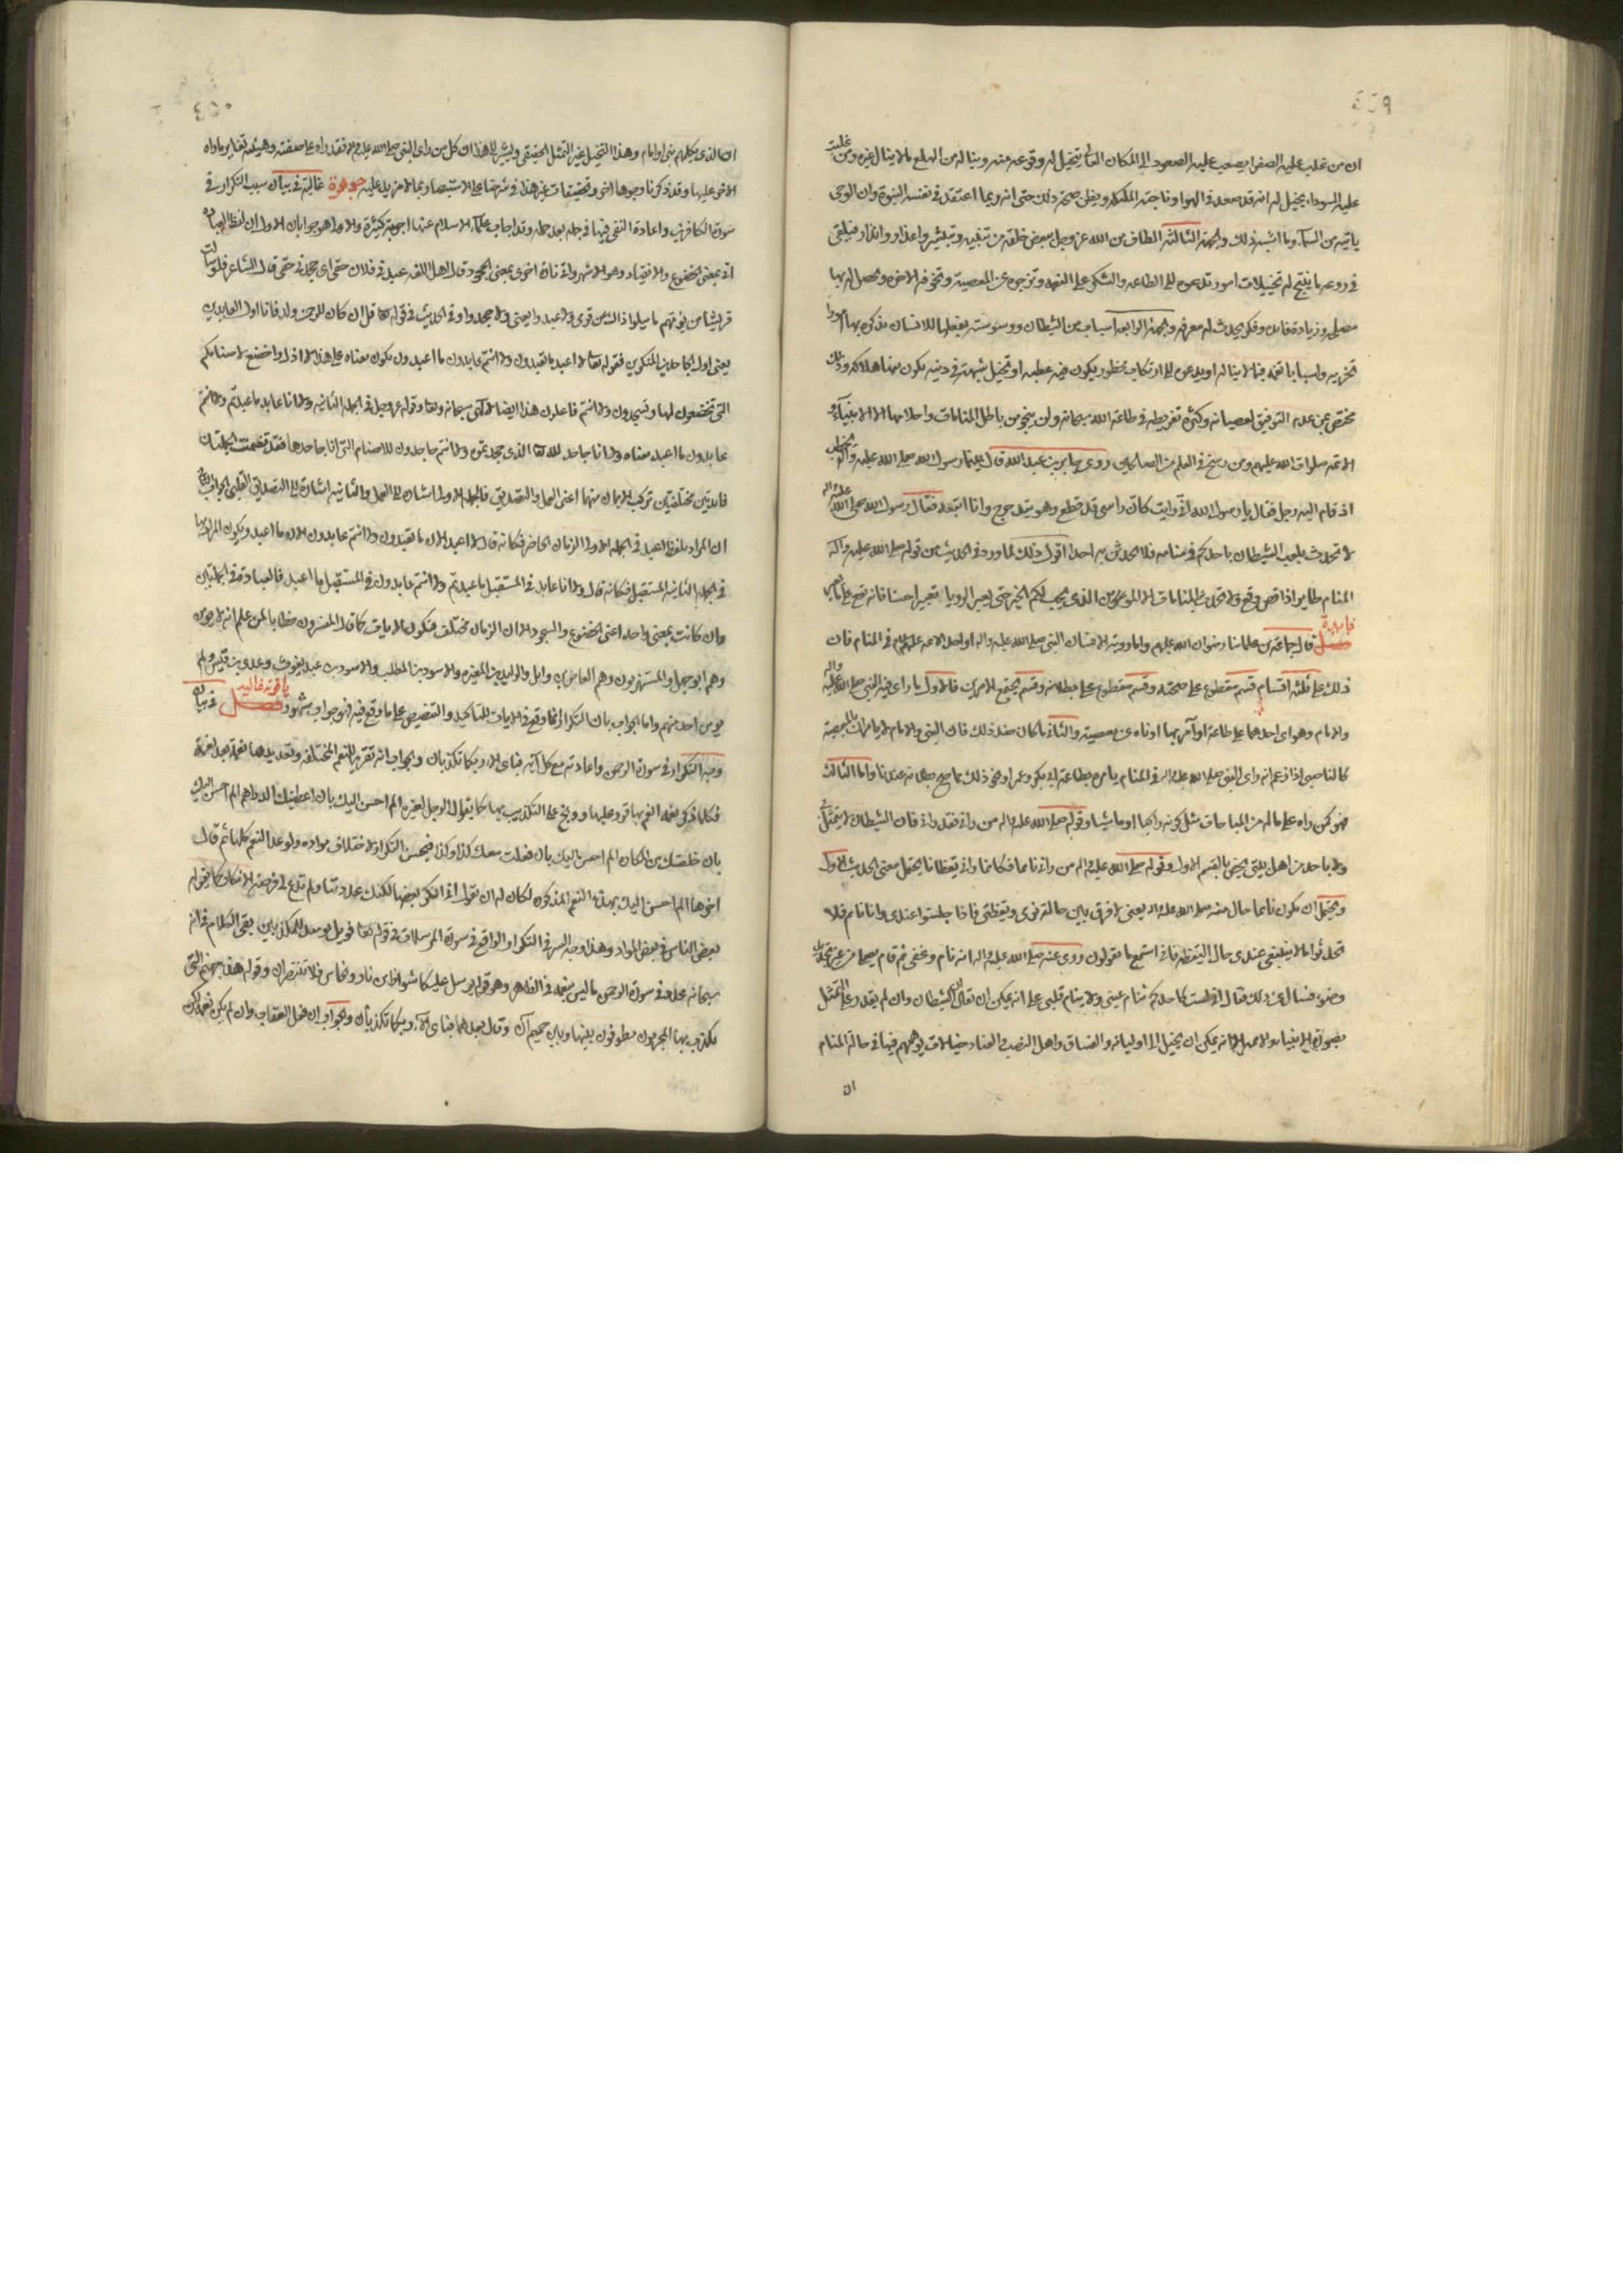 ٤٤٩
ان من غلب عليه الصفرا يصعب عليه الصعود الى المكان العالى يتخيل له وقوعه منه ويناله من الهلع ما لا ينال غيره ومن غلبت
عليه السوداء يتخيل له انه قد صعد فى الهوا وناجته الملئكة ويظن صحة ذلك حتى انه ربما اعتقد فى نفسه النبوة وان الوحى
ياتيه من السمآء وما اشبه ذلك والجهة الثالثة الطاف من الله عز وجل لبعض خلقه من تنبيه وتبشير واعذار وانذار فيلقى
فى روعه ما ينتج له تخييلات امور تدعوه الى الطاعه والشكر على النعمه وتزجره عن المعصيه وتخوفه الاخره ويحصل له بها
مصلحه وزيادة فايده وفكر يحدث له معرفه والجهة الرابعه اسباب من الشيطان ووسوسته يفعلها للانسان يذكره بها امورا
تحزنه واسبابا تغمه فيما لا يناله او يدعوه الى ارتكاب محظور يكون فيه عطبه او تخيل شبهة فى دينه يكون منها هلاكه وذلك
مختص بمن عدم التوفيق لعصيانه وكثرة تفريطه فى طاعة الله سبحانه ولن ينجو من باطل المنامات واحلامها الا الانبيآء و
الائمه صلوات الله عليهم ومن رسخ فى العلم من الصالحين روى جابر بن عبد الله قال بينما رسول الله صلى الله عليه وآله يخطب
اذ قام اليه رجل فقال يا رسول الله انى رايت كان راسى قد قطع وهو يتدحرج وانا اتبعه فقال رسول الله صلى الله عليه واله
لا تحدث بلعب الشيطان باحدكم فى منامه فلا يحدثن به احدا اقول ذلك لما ورد فى الحديث من قوله صلى الله عليه وآله
المنام طاير اذا قص وقع فلا تحدثوا المنامات الا المومنين الذى يحب لكم الخير حتى يعبر الرويا تعبيرا حسنا فانه تقع على ما يعبر
فايدة
فصل قال جماعة من علمائنا رضوان الله عليهم واما روية الانسان النبى صلى الله عليه واله او احد الائمه عليهم السلم فى المنام فان
ذلك على ثلثة اقسام قسم مقطوع على صحته وقسم مقطوع على بطلانه وقسم يجتمع الامرين فالاول ما راى فيه النبى صلى الله عليه واله
والامام وهو اى احدهما على طاعة او آمر بها او ناه عن معصيه والثانى ما كان ضد ذلك فان النبى والامام لا يامران بالمعصية
كالناصبى اذا زعم انه راى النبى صلى الله عليه واله فى المنام يامره بطاعة ابى بكر وعمر او نحو ذلك مما صح بطلانه عندنا واما الثالث
فهو كمن راه على حاله من المباحات مثل كونه راكبا او ماشيا وقوله صلى الله عليه واله من رانى فقد رانى فان الشيطان لا يتمثل بى
ولا باحد من اهل بيتى يختص بالقسم الاول وقوله صلى الله عليه واله من رانى نائما فكانما رانى يقظانا يحتمل معنى الحديث الاول
ويحتمل ان يكون نائما حال منه صلى الله عليه واله يعنى لا فرق بين حالة نومى ويقظتى فاذا جلستوا عندى وانا نائم فلا
تحدثوا بما لا ينبغى عندى حال اليقظه فانى استمع ما تقولون وروى عنه صلى الله عليه واله انه نام وغفى ثم قام يصلى من غير تجديد
وضوء فسال عن ذلك فقال انى لست كاحدكم تنام عينى ولا ينام قلبى على انه يمكن ان يقال ان الشيطان وان لم يقدر على التمثل
بصورة الانبياء والائمه الا انه يمكن ان يخيل الى اوليائه والفساق واهل النصب والعناد خيالات يوهمهم فيها فى حالة المنام
ان
٤٥٠
ان الذى يكلمهم نبى او امام وهذا التخيل غير التمثل الحقيقى ويشير الى هذا ان كل من راى النبى صلى الله عليه واله فقد راه على صفته وهيئته تغاير ما راه
الاخر عليها وقد ذكرنا وجوها اخر وتحقيقات غير هذا فى شرحنا على الاستبصار بما لا مزيد عليه جوهرة غالية فى بيان سبب التكرار فى
سورة الكافرين واعادة النفى فيها فى جمله بعد جمله وقد اجاب علمآء الاسلام عنها اجوبة كثيرة والاولى هو جوابان الاول ان لفظ العباده
اتى بمعنى الخضوع والانقياد وهو الاشهر واتى تارة اخرى بمعنى الجحود قال اهل اللغه عبدنى فلان حقى اى جحدنى حقى قال الشاعر فلو سالت
قريشا من يوتهم ما يبلوا اذا الثمن قومى ولا عبدوا يعنى ولا جحدوا وفى الحديث فى قوله تعالى قل ان كان للرحمن ولد فانا اول العابدين
يعنى اول الجاحدين المنكرين فقوله تعالى لا اعبد ما تعبدون ولا انتم عابدون ما اعبد ون يكون معناه على هذا لا اذل ولا اخضع لاصنامكم
التى تخضعون لها وتسجدون ولا انتم فاعلون هذا ايضا لالهى سبحانه وتعالى وقوله عز وجل فى الجمله الثانيه ولا انا عابد ما عبدتم ولا انتم
عابدون ما اعبد معناه ولا انا جاحد لله تعالى الذى جحدتموه ولا انتم جاحدون للاصنام التى انا جاحدها فقد تضمنت الجملتان
فايدتين مختلفتين تركب الايمان منهما اعنى العمل والتصديق فالجمله الاولى اشاره الى العمل والثانيه اشارة الى التصديق القلبى الجواب الثانى
ان المراد بلفظ العبد فى الجمله الاولى الزمان الحاضر فكانه قال لا اعبد الان ما تعبدون ولا انتم عابدون الان ما اعبد ويكون المراد بها
فى الجمله الثانيه المستقبل فكانه قال ولا انا عابد فى المستقبل ما عبدتم ولا انتم عابدون فى المستقبل ما اعبد فالعبادة فى الجملتين
وان كانت بمعنى واحد اعنى الخضوع والسجود الا ان الزمان مختلف فتكون الايات كما قال المفسرون خطابا لمن علم انه لا يومن
وهم ابو جهل والمستهزون وهم العاص بن وايل والوليد بن المغيره والاسود بن المطلب والاسود بن عبد يغوث وعدى بن قيس ولم
يومن احد منهم واما الجواب بان التكرار انما وقع فى الايات للتاكيد والتفضيض على ما وقع فيه فهو جواب مشهور فصل ياقوته غاليه فى بيان
وجه التكرار فى سورة الرحمن واعادته مع كل آية فباى الاء ربكما تكذبان والجواب انه تقرير للنعم المختلفه وتعديدها نعمة بعد نعمة
فكلما ذكر نعمه انعم بها قرر عليها ووبخ على التكذيب بها كما يقول الرجل لغيره الم احسن اليك بان اعطيتك الدراهم الم احسن اليك
بان خلصتك من المكاره الم احسن اليك بان فعلت معك كذا وكذا فيحسن التكرار لاختلاف مواده ولو عد النعم كلها ثم قال
اخرها الم احسن اليك بهذه النعم المذكوره لكان له ان يقول انى انكر بعضها لكنك عددتها ولم تدع لى فرصة الانكار كما يتحوله
بعض الناس فى بعض المواد وهذا وجه السر فى التكرار الواقع فى سورة المرسلات فى قوله تعالى فويل يومئذ للمكذبين بقى الكلام فى انه
سبحانه عد فى سورة الرحمن ما ليس بنعمه فى الظاهر وهو قوله يرسل عليكما شواظ من نار ونحاس فلا تنتصران وقوله هذه جهنم التى
يكذب بها المجرمون يطوفون بينها وبين حميم آن وقال بعدهما فباى الآء ربكما تكذبان والجواب ان فعل العقاب وان لم يكن نعمه لكن